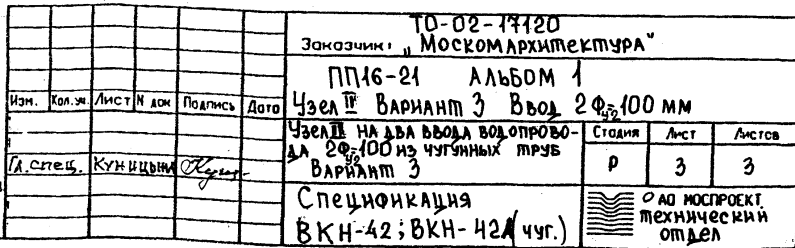 ТО-02-17120
Заказчик: „Москомархитектура"
ПП16-21 Альбом 1
Узел IV Вариант 3 Ввод 2Фу2-100 мм
Изм. Кол.уч. Лист N док Подпись Дата
Узел IV на два ввода водопрово-
да 2Фу2-100 из чугунных труб
Вариант 3
Стадия Лист Листов
Р 3 3
Гл. спец. Куницына
Спецификация
ВКН-42; ВКН-42А (чуг.)
ОАО МОСПРОЕКТ
технический
отдел